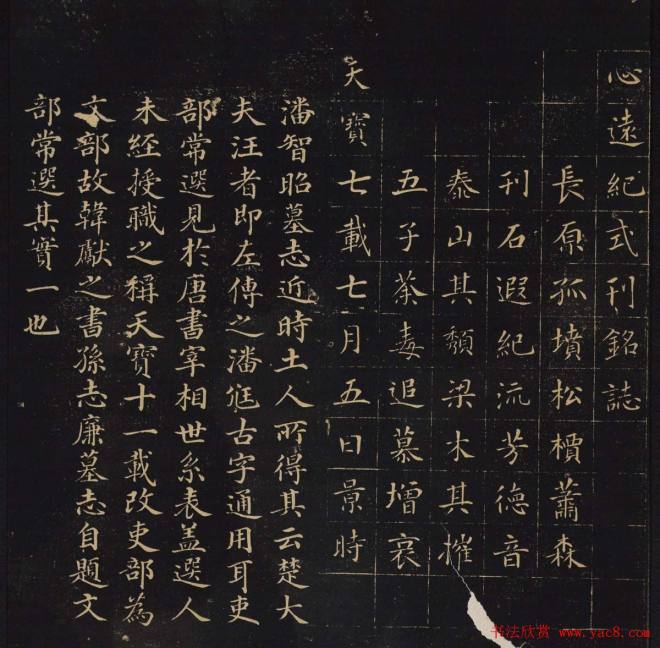 心遠紀式刊銘誌
長原孤墳松檟蕭森
刊石遐紀流芳德音
泰山其頹梁木其摧
五子荼毒追慕增哀
天寶七載七月五日景時
潘智昭墓志近時土人所得其云楚大
夫汪者即左傳之潘尫古字通用耳吏
部常選見於唐書宰相世系表盖選人
未經授職之稱天寶十一載改吏部為
文部故韓獻之書孫志廉墓志自題文
部常選其實一也
书法欣赏 www.yac8.com